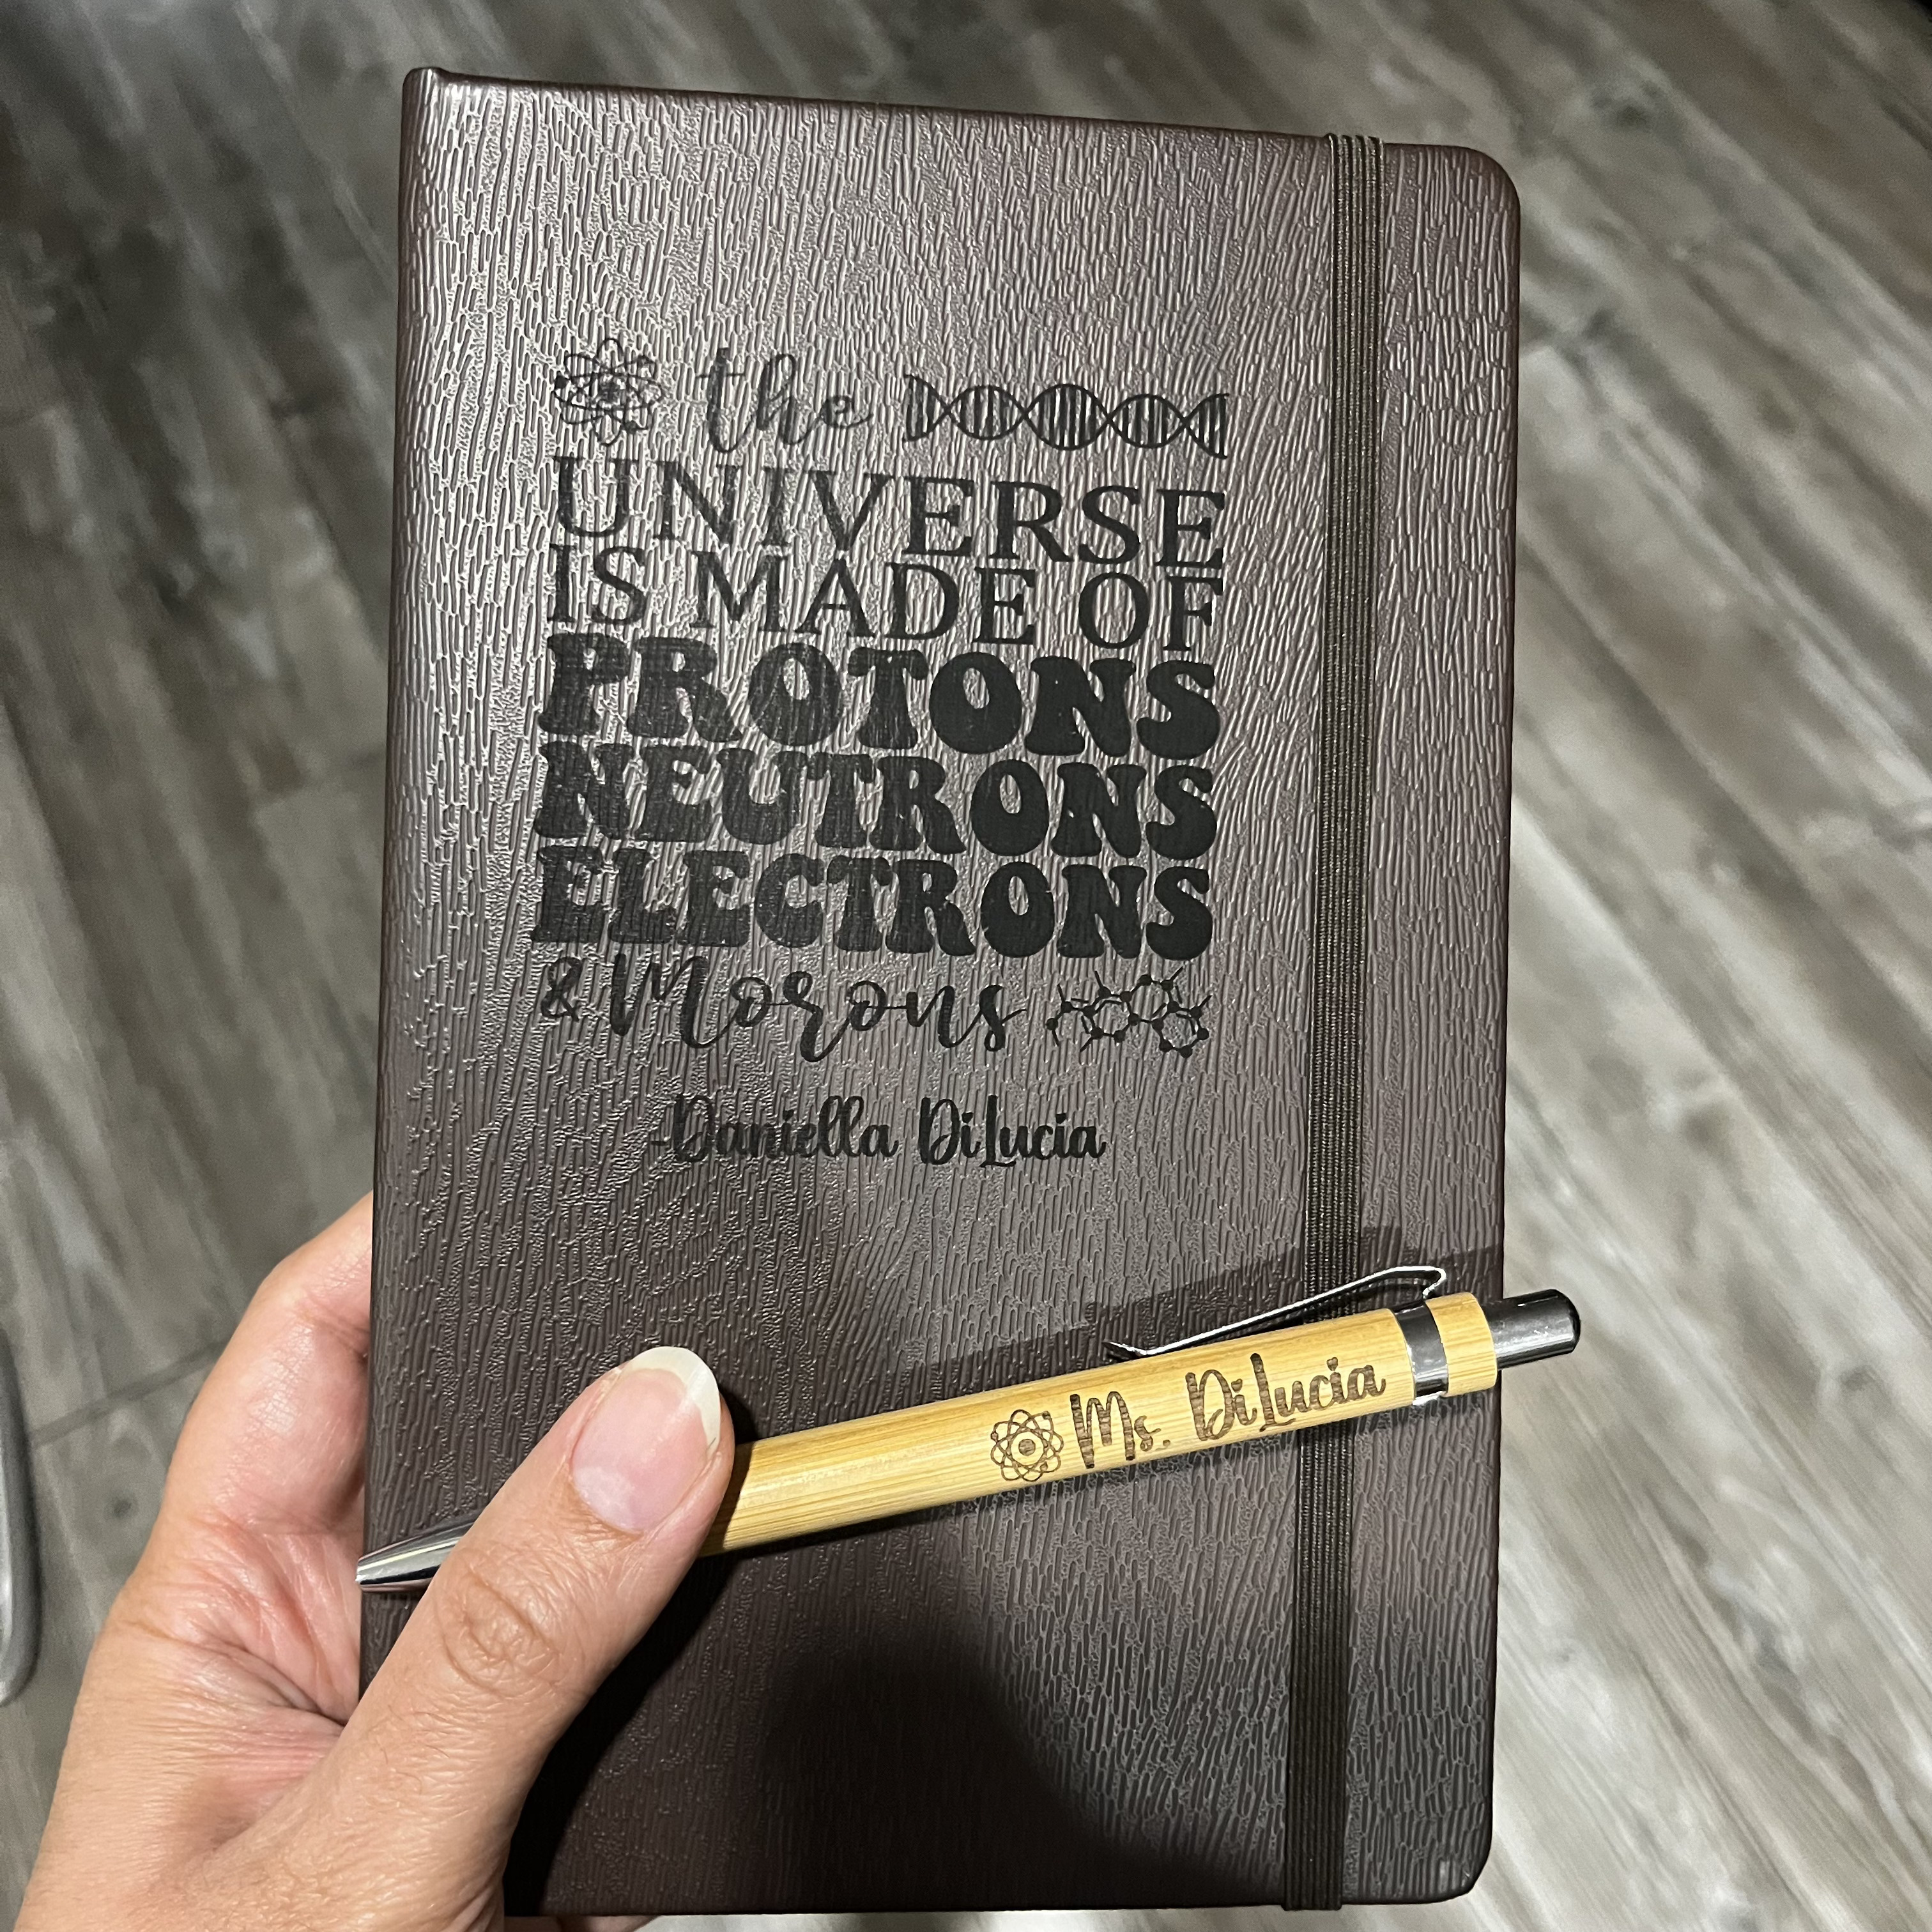 the
UNIVERSE
IS MADE OF
PROTONS
NEUTRONS
ELECTRONS
& Morons
-Daniella DiLucia
Ms. DiLucia